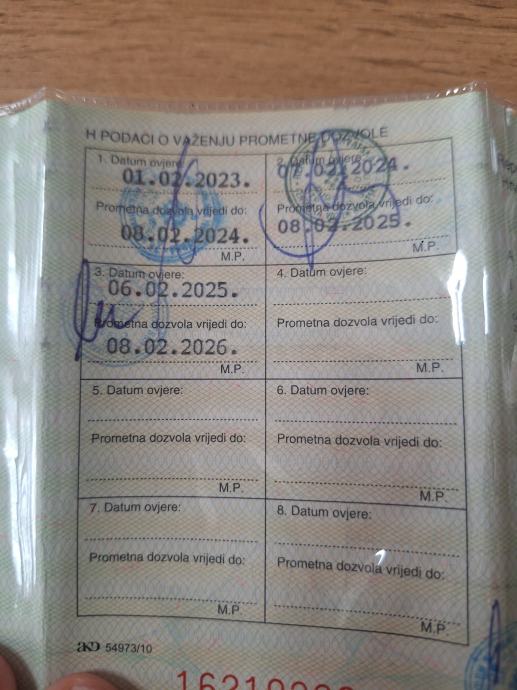 H PODACI O VAŽENJU PROMETNE DOZVOLE
1. Datum ovjere:
01.02.2023.
Prometna dozvola vrijedi do:
08.02.2024.
M.P.
2. Datum ovjere:
07.02.2024.
Prometna dozvola vrijedi do:
08.02.2025.
M.P.
3. Datum ovjere:
06.02.2025.
Prometna dozvola vrijedi do:
08.02.2026.
M.P.
4. Datum ovjere:
Prometna dozvola vrijedi do:
M.P.
5. Datum ovjere:
Prometna dozvola vrijedi do:
M.P.
6. Datum ovjere:
Prometna dozvola vrijedi do:
M.P.
7. Datum ovjere:
Prometna dozvola vrijedi do:
M.P.
8. Datum ovjere:
Prometna dozvola vrijedi do:
M.P.
AKD 54973/10